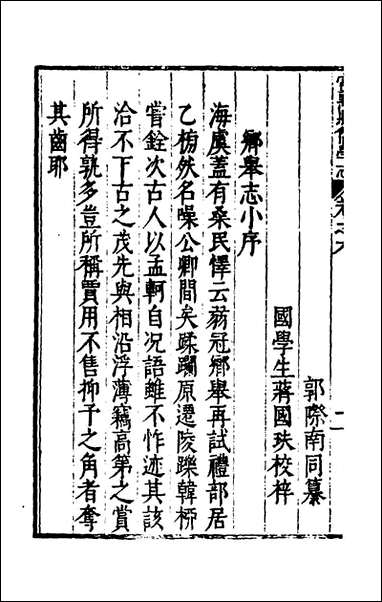 常熟縣儒學志 卷之八 二
郭際南同纂
國學生蔣國玦校梓
鄉舉志小序
海虞蓋有桑民懌云蒻冠鄉舉再試禮部居
乙榜然名噪公卿間矣蹂躪原遷陵躒韓桺
嘗銓次古人以孟軻自况語雖不怍迹其該
洽不下古之茂先與相沿浮薄竊高第之賞
所得孰多豈所稱賈用不售抑予之角者奪
其齒耶